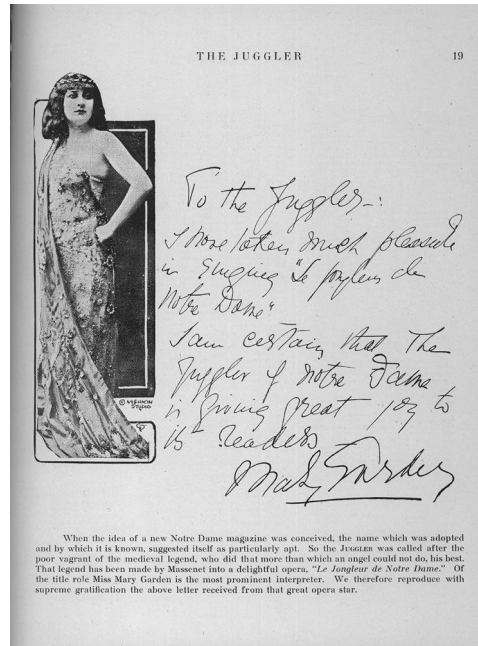 THE JUGGLER 19
To the Juggler—:
I have taken much pleasure
in singing "Le jongleur de
Notre Dame"
I am certain that The
Juggler of Notre Dame
is giving great joy to
its readers
Mary Garden
© MISHKIN
STUDIO
When the idea of a new Notre Dame magazine was conceived, the name which was adopted
and by which it is known, suggested itself as particularly apt. So the JUGGLER was called after the
poor vagrant of the medieval legend, who did that more than which an angel could not do, his best.
That legend has been made by Massenet into a delightful opera, "Le Jongleur de Notre Dame." Of
the title role Miss Mary Garden is the most prominent interpreter. We therefore reproduce with
supreme gratification the above letter received from that great opera star.